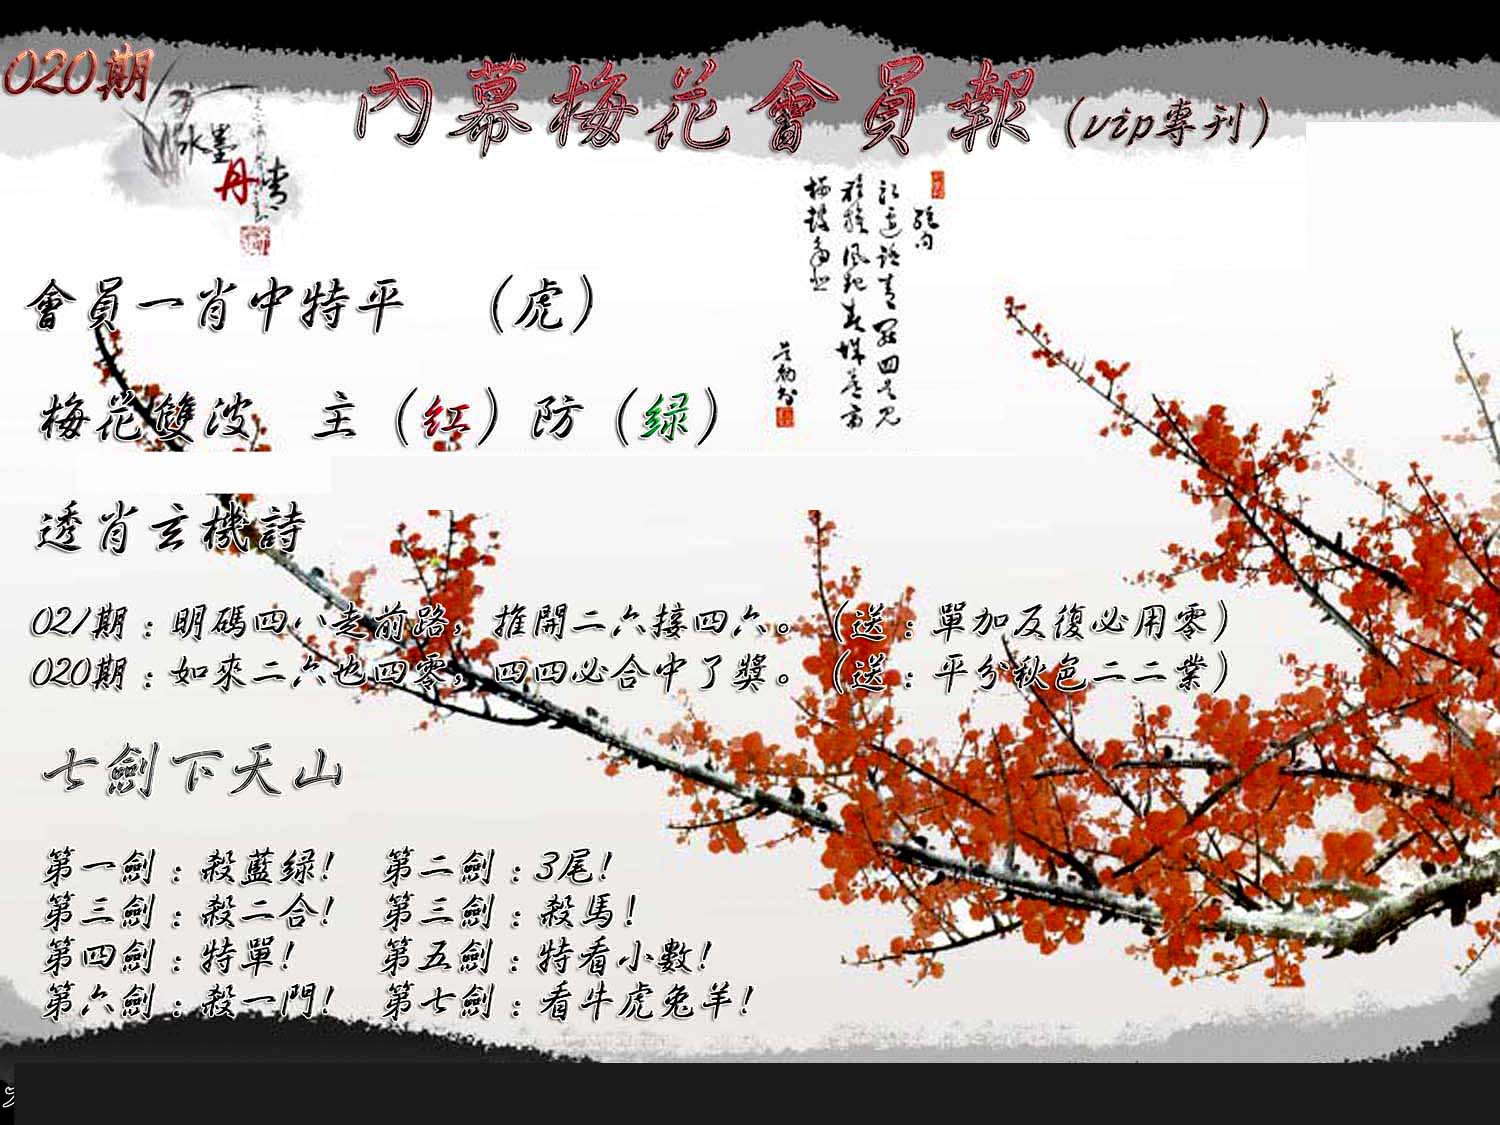 020期
內幕梅花會員報（vip專刊）
水墨
丹青
會員一肖中特平　（虎）
梅花雙波　主（红）防（绿）
透肖玄機詩
021期：明碼四八走前路，推開二六接四六。（送：單加反復必用零）
020期：如來二六也四零，四四必合中了獎。（送：平分秋色二二業）
七劍下天山
第一劍：殺藍绿！　第二劍：3尾！
第三劍：殺二合！　第三劍：殺馬！
第四劍：特單！　第五劍：特看小數！
第六劍：殺一門！　第七劍：看牛虎兔羊！